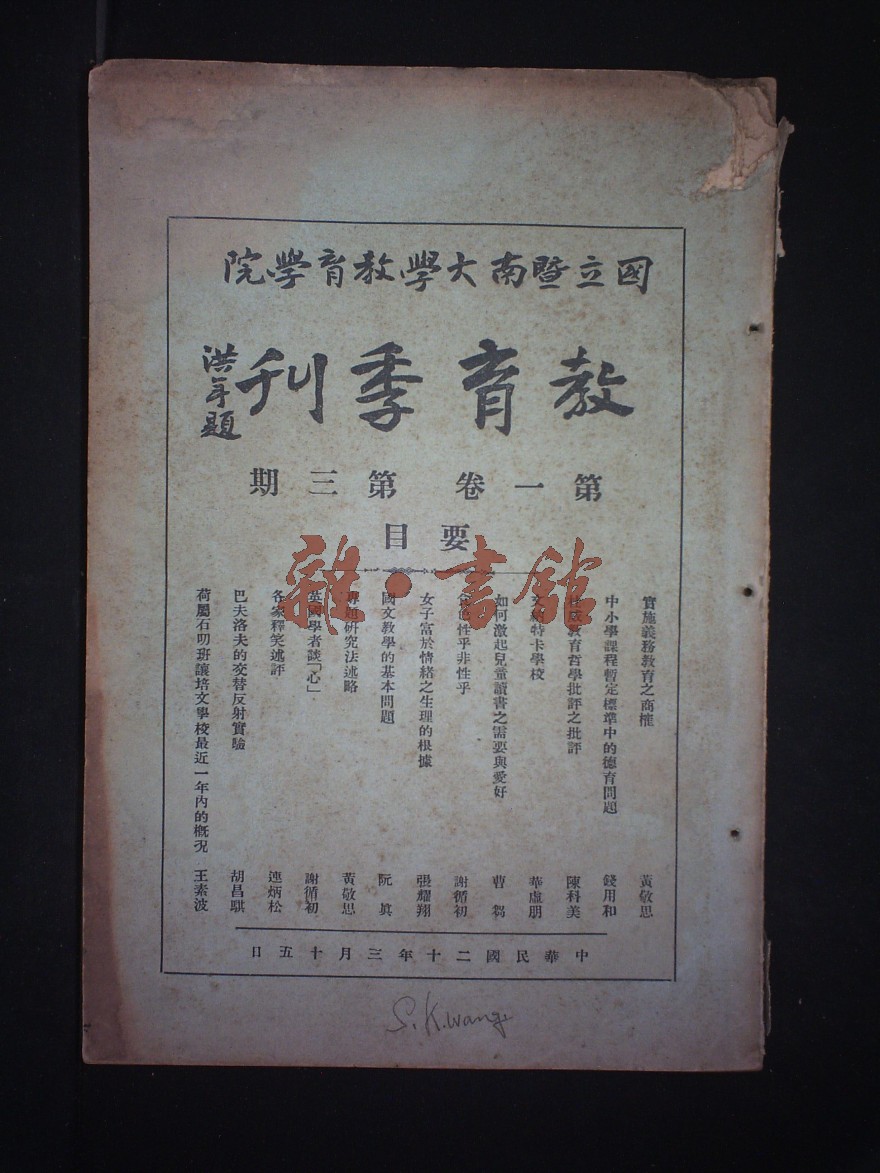 國立暨南大學教育學院
教育季刊
洪年題
第一卷 第三期
要目
雜·書館
實施義務教育之商榷 黃敬思
中小學課程暫定標準中的德育問題 錢用和
杜威教育哲學批評之批評 陳科美
文納特卡學校 華虛朋
如何激起兒童讀書之需要與愛好 曹芻
食色性乎非性乎 謝循初
女子富於情緒之生理的根據 張耀翔
國文教學的基本問題 阮眞
專題研究法述略 黃敬思
英國學者談「心」 謝循初
各家釋笑述評 連炳松
巴夫洛夫的交替反射實驗 胡昌騏
荷屬石叻班讓培文學校最近一年內的概況 王素波
中華民國二十年三月十五日
S. K. Wang